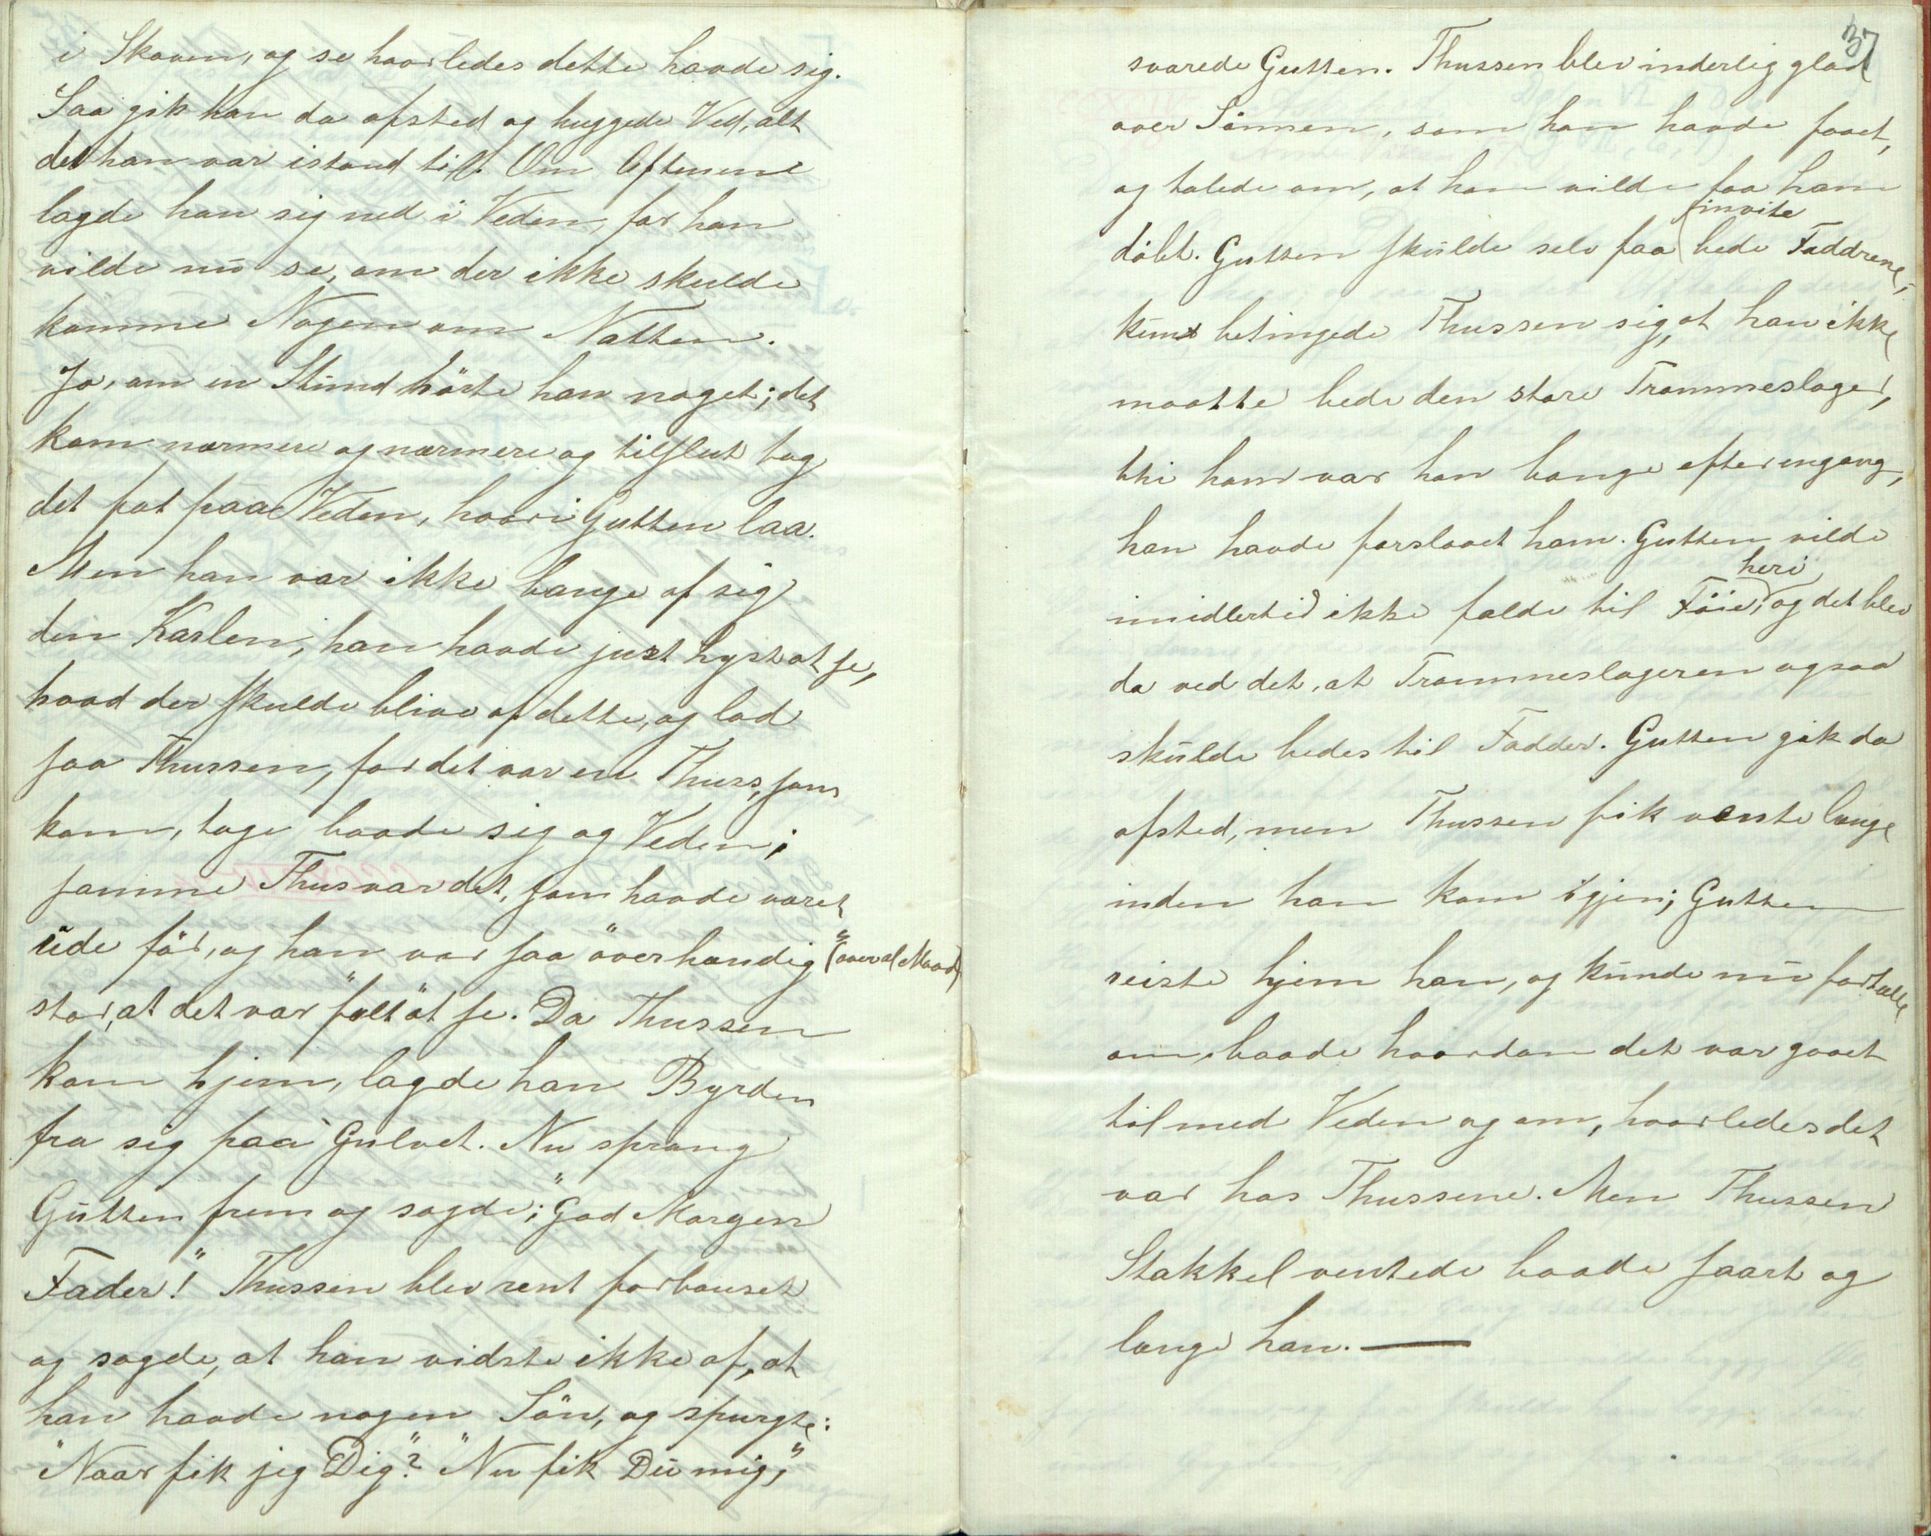 i Skoven, og se hvorledes dette havde sig.
Saa gik han da afsted og huggede Ved, alt
det han var istand til. Om Aftenene
lagde han sig ned i Veden, for han
vilde nu se, om der ikke skulde
komme Nogen om Natten.
Jo, om en Stund hörte han noget; det
kom nærmere og nærmere og tilslut tog
det fat paa Veden, hvori Gutten laa.
Men han var ikke bange af sig
den Karlen, han havde just hyst at se,
hvad der skulde blive af dette, og lod
saa Thussen, for det var en Thurs, som
kom, tage baade sig og Veden;
samme Thus var det, som havde været
ude för, og han var saa "överhændig" (over al Maade)
stor, at det var "fælt" at se. Da Thussen
kom hjem, lagde han Byrden
fra sig paa Gulvet. Nu sprang
Gutten frem og sagde; "God Morgen
Fader!" Thussen blev rent forbauset
og sagde, at han vidste ikke af, at
han havde nogen Sön, og spurgte:
"Naar fik jeg Dig"? "Nu fik Du mig,"
37
svarede Gutten. Thussen blev inderlig glad
over Sönnen, som han havde faaet,
og talede om, at han vilde faa ham
invite
döbt. Gutten skulde selv faa bede Faddrene,
kun betingede Thussen sig, at han ikke
maatte bede den store Trommeslager,
thi ham var han bange efter engang,
han havde forslaaet ham. Gutten vilde
heri
imidlertid ikke falde til Föie, og det blev
da ved det, at Trommeslageren ogsaa
skulde bedes til Fadder. Gutten gik da
afsted, men Thussen fik vente længe
inden han kom igjen; Gutten
reiste hjem han, og kunde nu fortælle
om baade hvordan det var gaaet
til med Veden og om, hvorledes det
var hos Thussene. Men Thussen
Stakkel ventede baade saart og
længe han. —